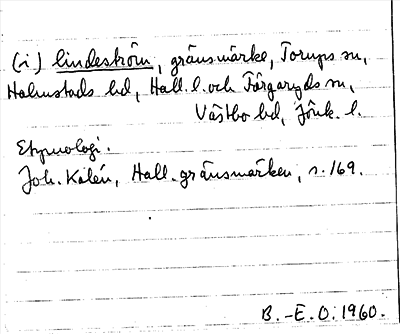 (i) lindeström, gränsmärke, Torups sn,
Halmstads hd, Hall. l. och Färgaryds sn,
Västbo hd, Jönk. l.
Etymologi.
Joh. Kalén, Hall. gränsmärken, s. 169.
B.-E. O. 1960.